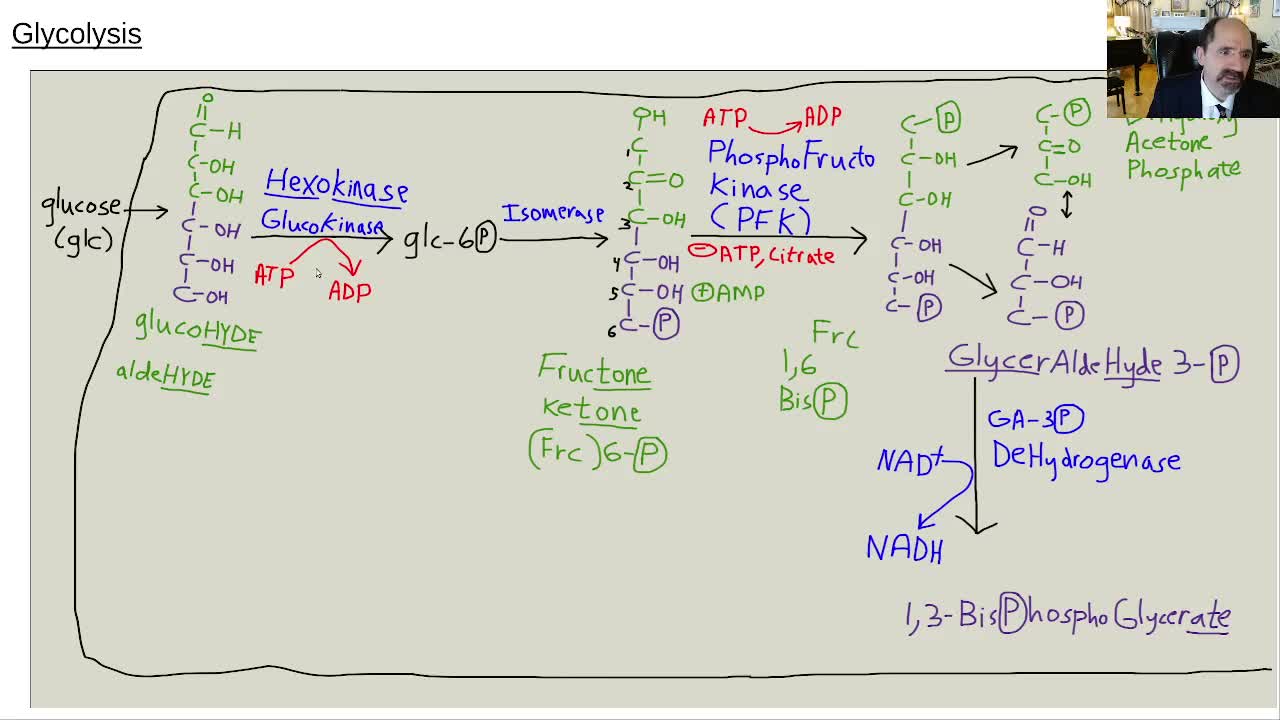 Glycolysis
glucose
(glc)
O
C-H
C-OH
C-OH
C-OH
C-OH
C-OH
glucoHYDE
aldeHYDE
Hexokinase
Glucokinase
ATP
ADP
glc-6P
Isomerase
OH
1 C
2 C=O
3 C-OH
4 C-OH
5 C-OH
6 C-P
Fructone
ketone
(Frc)6-P
ATP ADP
PhosphoFructo
Kinase
(PFK)
- ATP, Citrate
+ AMP
Frc
1,6
Bis P
C-P
C-OH
C-OH
C-OH
C-OH
C-P
C-P
C=O
C-OH
Acetone
Phosphate
O
C-H
C-OH
C-P
GlycerAldeHyde 3-P
GA-3P
DeHydrogenase
NAD+
NADH
1,3-BisPhosphoGlycerate